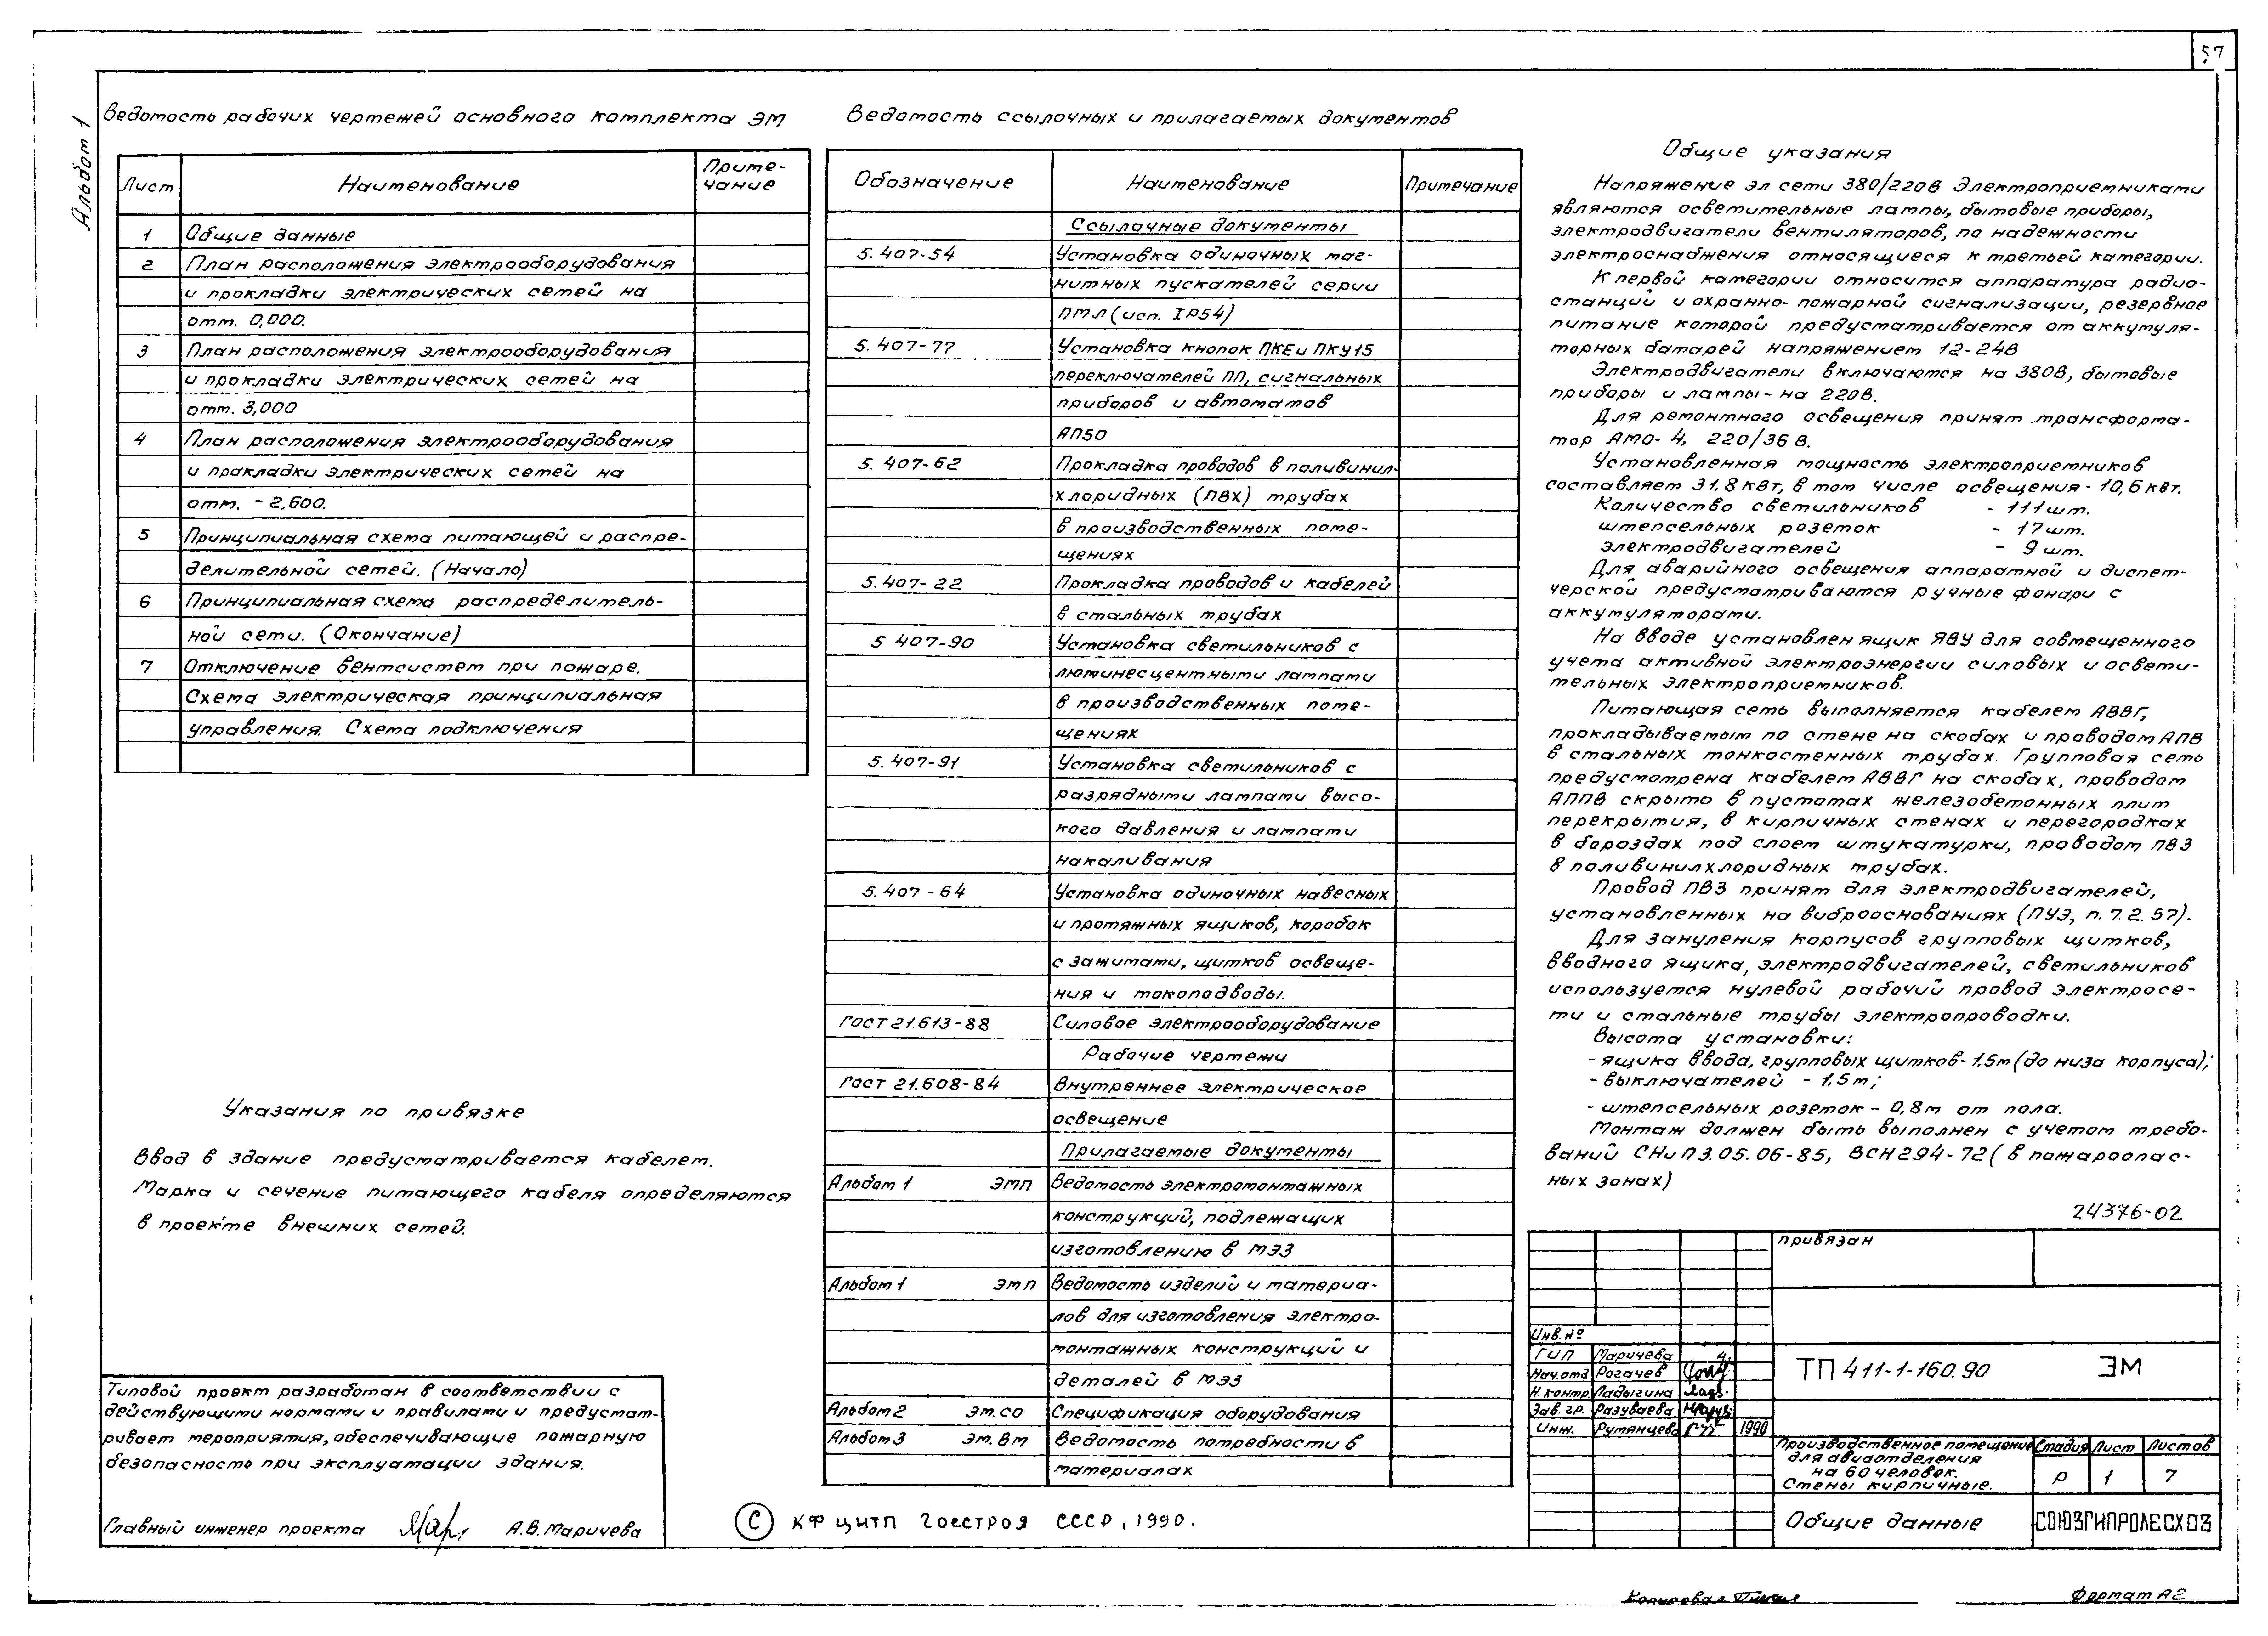 57
Альбом 1
Ведомость рабочих чертежей основного комплекта ЭМ
Лист Наименование Приме-
чание
1 Общие данные
2 План расположения электрооборудования
и прокладки электрических сетей на
отм. 0,000.
3 План расположения электрооборудования
и прокладки электрических сетей на
отм. 3,000
4 План расположения электрооборудования
и прокладки электрических сетей на
отм. - 2,600.
5 Принципиальная схема питающей и распре-
делительной сетей. (Начало)
6 Принципиальная схема распределитель-
ной сети. (Окончание)
7 Отключение вентсистем при пожаре.
Схема электрическая принципиальная
управления. Схема подключения
Указания по привязке
Ввод в здание предусматривается кабелем.
Марка и сечение питающего кабеля определяются
в проекте внешних сетей.
Типовой проект разработан в соответствии с
действующими нормами и правилами и предусмат-
ривает мероприятия, обеспечивающие пожарную
безопасность при эксплуатации здания.
Главный инженер проекта А.В. Маричева
Ведомость ссылочных и прилагаемых документов
Обозначение Наименование Примечание
Ссылочные документы
5.407-54 Установка одиночных маг-
нитных пускателей серии
ПМЛ (исп. IP54)
5.407-77 Установка кнопок ПКЕ и ПКУ15
переключателей ПП, сигнальных
приборов и автоматов
АП50
5.407-62 Прокладка проводов в поливинил-
хлоридных (ПВХ) трубах
в производственных поме-
щениях
5.407-22 Прокладка проводов и кабелей
в стальных трубах
5 407-90 Установка светильников с
люминесцентными лампами
в производственных поме-
щениях
5.407-91 Установка светильников с
разрядными лампами высо-
кого давления и лампами
накаливания
5.407-64 Установка одиночных навесных
и протяжных ящиков, коробок
с зажимами, щитков освеще-
ния и токоподводы.
ГОСТ 21.613-88 Силовое электрооборудование
Рабочие чертежи
ГОСТ 21.608-84 Внутреннее электрическое
освещение
Прилагаемые документы
Альбом 1 ЭМП Ведомость электромонтажных
конструкций, подлежащих
изготовлению в МЭЗ
Альбом 1 ЭМП Ведомость изделий и материа-
лов для изготовления электро-
монтажных конструкций и
деталей в МЭЗ
Альбом 2 ЭМ.СО Спецификация оборудования
Альбом 3 ЭМ.ВМ Ведомость потребности в
материалах
© КФ ЦИТП Госстроя СССР, 1990.
Общие указания
Напряжение эл сети 380/220В Электроприемниками
являются осветительные лампы, бытовые приборы,
электродвигатели вентиляторов, по надежности
электроснабжения относящиеся к третьей категории.
К первой категории относится аппаратура радио-
станций и охранно-пожарной сигнализации, резервное
питание которой предусматривается от аккумуля-
торных батарей напряжением 12-24В
Электродвигатели включаются на 380В, бытовые
приборы и лампы - на 220В.
Для ремонтного освещения принят трансформа-
тор АМО-4, 220/36 В.
Установленная мощность электроприемников
составляет 31,8 кВт, в том числе освещения - 10,6 кВт.
Количество светильников - 111 шт.
штепсельных розеток - 17 шт.
электродвигателей - 9 шт.
Для аварийного освещения аппаратной и диспет-
черской предусматриваются ручные фонари с
аккумуляторами.
На вводе установлен ящик ЯВУ для совмещенного
учета активной электроэнергии силовых и освети-
тельных электроприемников.
Питающая сеть выполняется кабелем АВВГ,
прокладываемым по стене на скобах и проводом АПВ
в стальных тонкостенных трубах. Групповая сеть
предусмотрена кабелем АВВГ на скобах, проводом
АППВ скрыто в пустотах железобетонных плит
перекрытия, в кирпичных стенах и перегородках
в бороздах под слоем штукатурки, проводом ПВ3
в поливинилхлоридных трубах.
Провод ПВ3 принят для электродвигателей,
установленных на виброоснованиях (ПУЭ, п. 7.2.57).
Для зануления корпусов групповых щитков,
вводного ящика, электродвигателей, светильников
используется нулевой рабочий провод электросе-
ти и стальные трубы электропроводки.
Высота установки:
- ящика ввода, групповых щитков - 1,5м (до низа корпуса);
- выключателей - 1,5 м;
- штепсельных розеток - 0,8м от пола.
Монтаж должен быть выполнен с учетом требо-
ваний СНиП 3.05.06-85, ВСН 294-72 (в пожароопас-
ных зонах)
24376-02
Привязан
Инв. №
ГИП Маричева
Нач. отд Рогачев
Н. контр. Ладыгина
Зав. гр. Разуваева
Инж. Румянцева 1990
ТП 411-1-160.90 ЭМ
Производственное помещение
для авиаотделения
на 60 человек.
Стены кирпичные.
Стадия Лист Листов
Р 1 7
Общие данные
СОЮЗГИПРОЛЕСХОЗ
Копировал
Формат А2